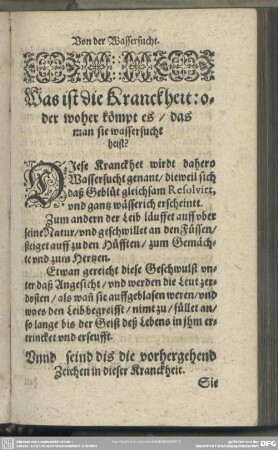 Von der Wassersucht.
Was ist die Kranckheit: o-
der woher kömpt es / das
man sie wassersucht
heist?
Diese Kranckhet wirdt dahero
Wassersucht genant / dieweil sich
daß Geblüt gleichsam Resolvirt,
vnd gantz wässerich erscheinet.
Zum andern der Leib läuffet auff vber
seine Natur / vnd geschwillet an den Füssen /
steiget auff zu den Hüfften / zum Gemäch-
te vnd zum Hertzen.
Etwan gereicht diese Geschwulst vn-
ter daß Angesicht / vnd werden die Leut zer-
dosten / als wañ sie auffgeblasen weren / vnd
woes den Leib begreifft / nimt zu / füllet an /
so lange bis der Geist deß Lebens in jhm er-
trincket vnd erseufft.
Vnnd seind dis die vorhergehend
Zeichen in dieser Kranckheit.
Sie